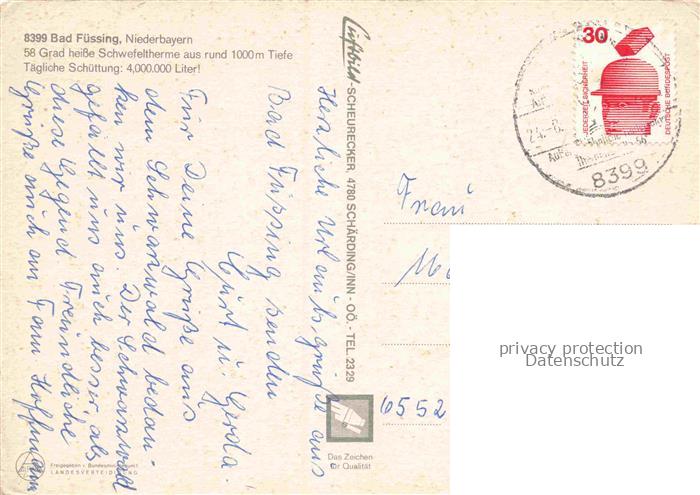 8399 Bad Füssing, Niederbayern
58 Grad heiße Schwefeltherme aus rund 1000m Tiefe
Tägliche Schüttung: 4,000.000 Liter!
Herzliche Urlaubsgrüße aus
Bad Füssing senden
Curt u. Gerda.
Für Deine Grüße aus
dem Schwarzwald bedan-
ken wir uns. Der Schwarzwald
gefällt uns auch besser als
diese Gegend. Freundliche
Grüße auch an Fam Hoffmann
Luftbild-SCHEURECKER, 4780 SCHÄRDING/INN - OÖ. - TEL. 2329
30
JEDERZEIT SICHERHEIT
DEUTSCHE BUNDESPOST
8399
Frau
6552
privacy protection
Datenschutz
Das Zeichen
für Qualität
Freigegeben v. Bundesministerium f.
LANDESVERTEIDIGUNG